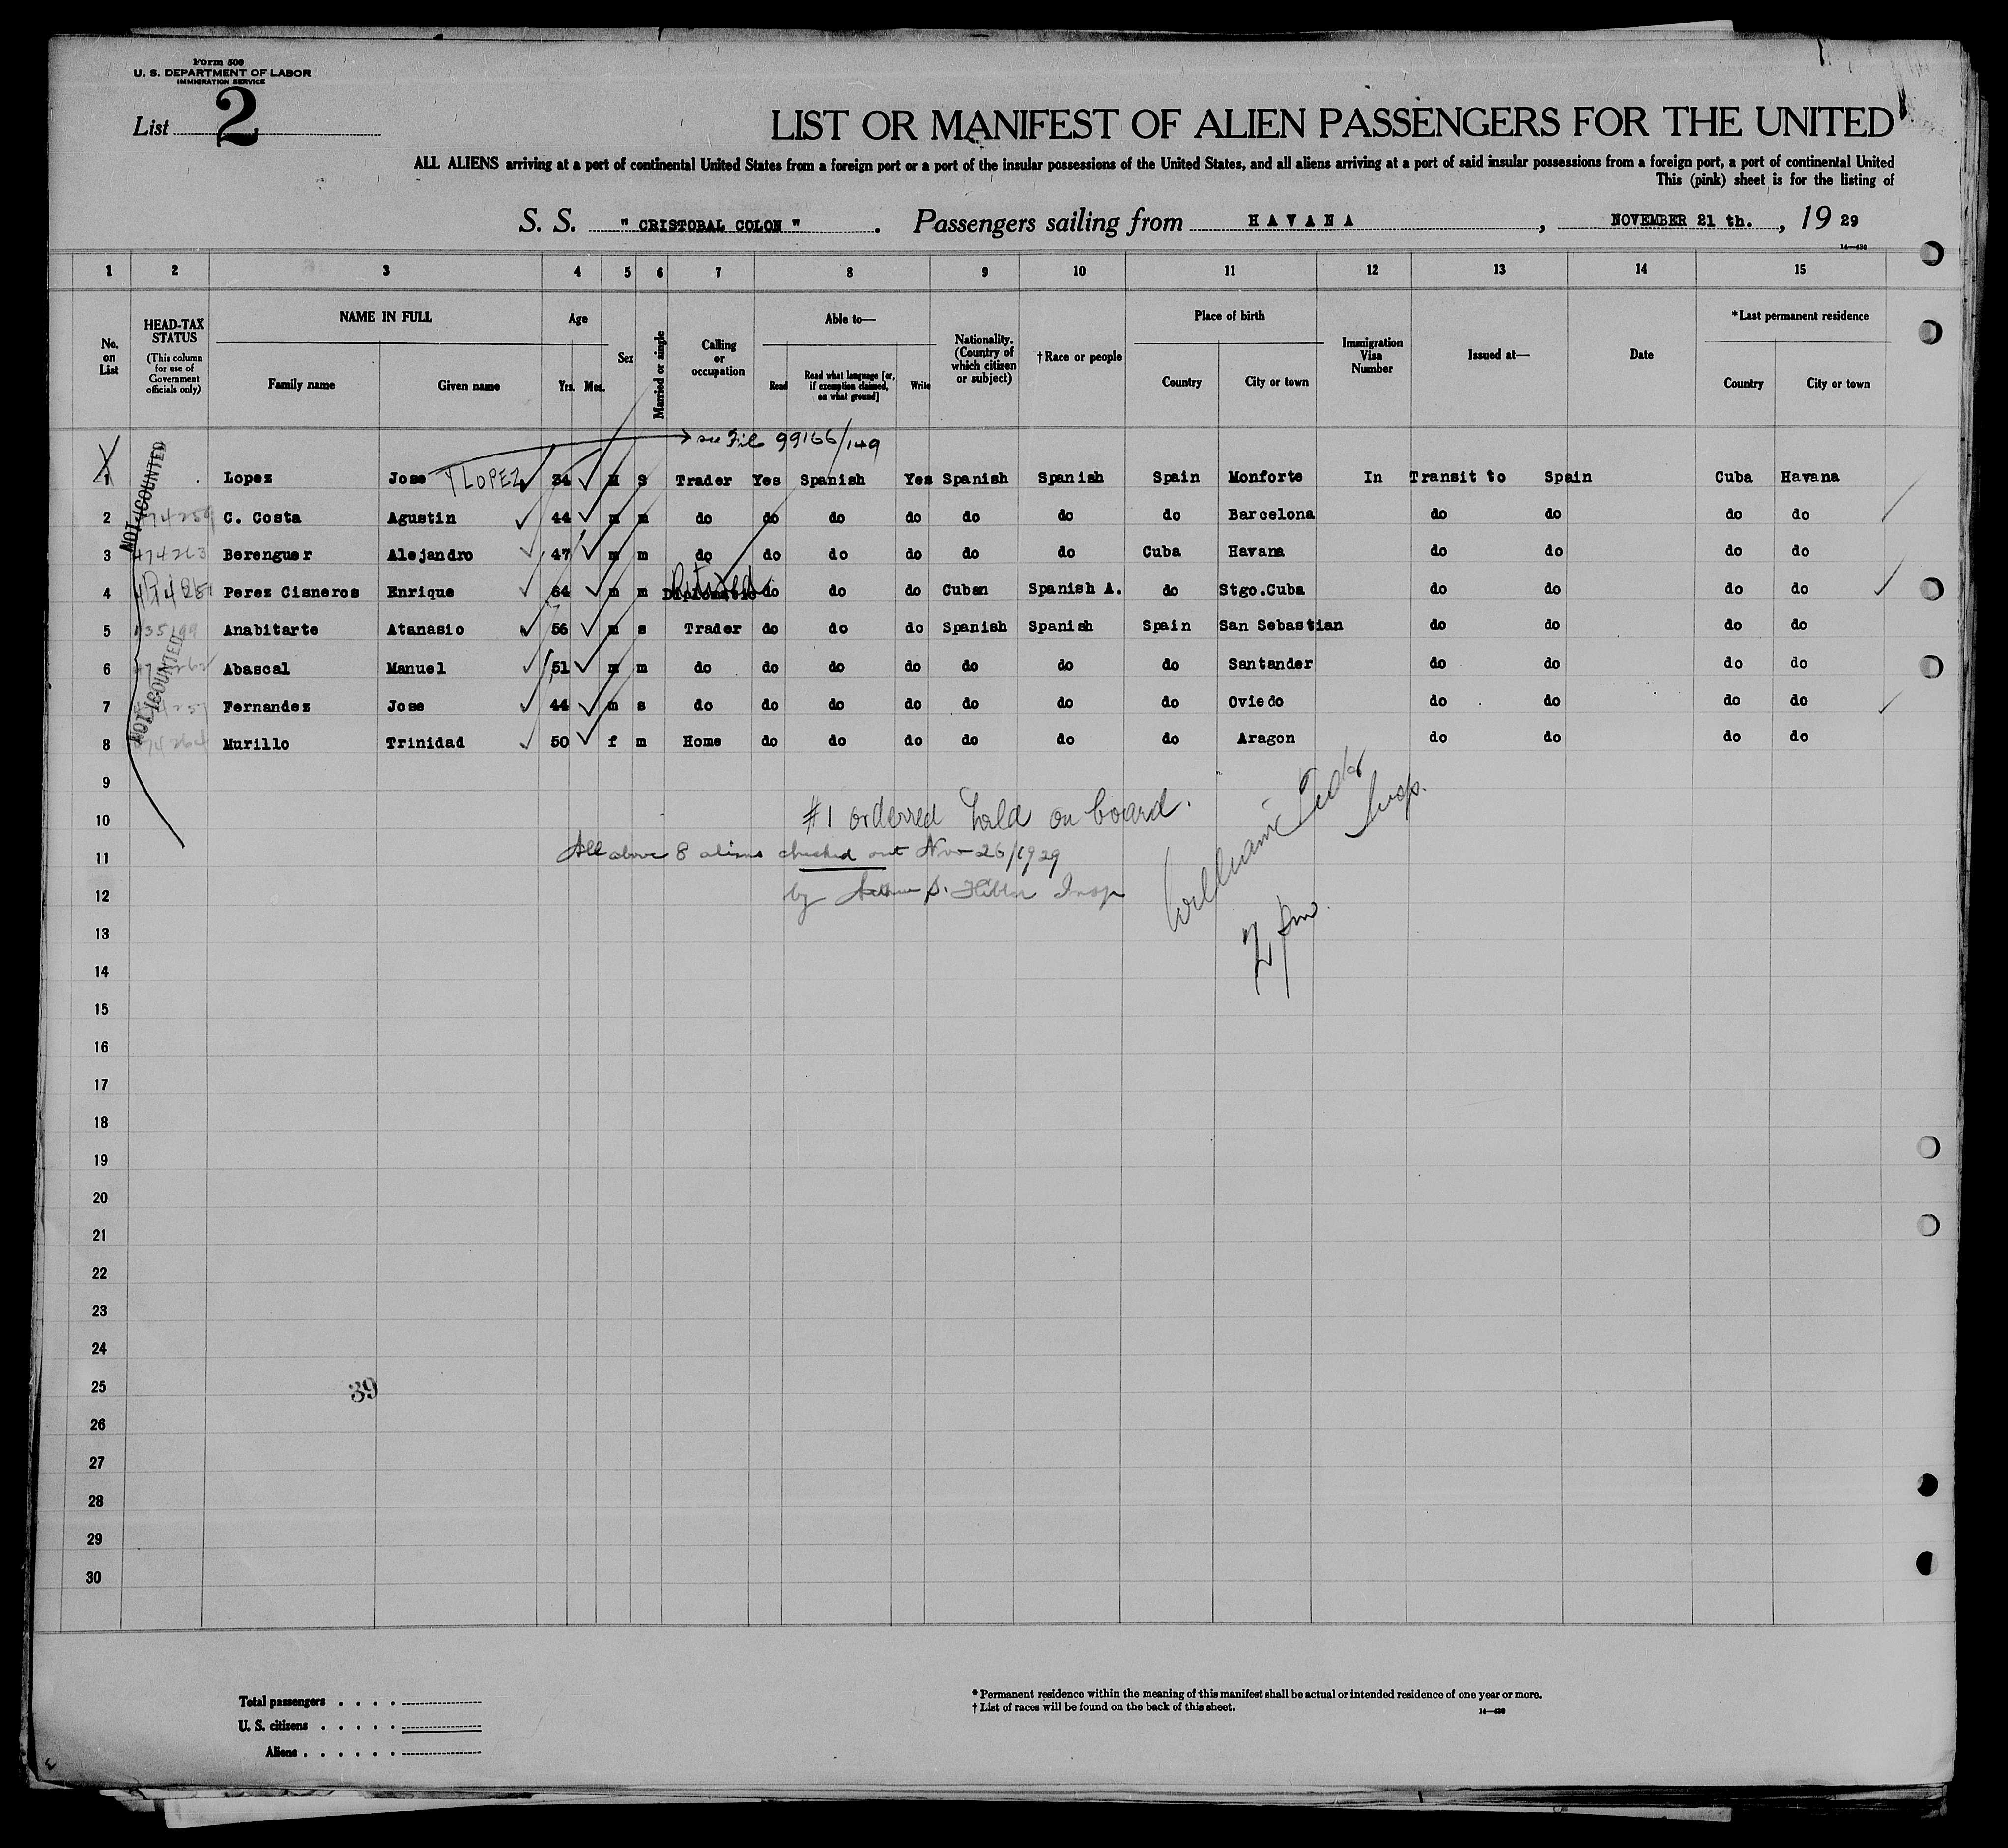 Form 500
U. S. DEPARTMENT OF LABOR
IMMIGRATION SERVICE
List 2
LIST OR MANIFEST OF ALIEN PASSENGERS FOR THE UNITED
ALL ALIENS arriving at a port of continental United States from a foreign port or a port of the insular possessions of the United States, and all aliens arriving at a port of said insular possessions from a foreign port, a port of continental United
This (pink) sheet is for the listing of
S. S. " CRISTOBAL COLON ". Passengers sailing from HAVANA, NOVEMBER 21 th., 19 29
14—430
1 2 3 4 5 6 7 8 9 10 11 12 13 14 15
No. on List
HEAD-TAX STATUS
(This column for use of Government officials only)
NAME IN FULL
Family name
Given name
Age
Yrs. Mos.
Sex
Married or single
Calling or occupation
Able to—
Read
Read what language [or, if exemption claimed, on what ground]
Write
Nationality. (Country of which citizen or subject)
†Race or people
Place of birth
Country
City or town
Immigration Visa Number
Issued at—
Date
*Last permanent residence
Country
City or town
see File 99166/149
NOT COUNTED
1 Lopez Jose Y LOPEZ 34 M S Trader Yes Spanish Yes Spanish Spanish Spain Monforte In Transit to Spain Cuba Havana
2 C. Costa Agustin 44 m m do do do do do do do Barcelona do do do do
3 474263 Berenguer Alejandro 47 m m do do do do do do Cuba Havana do do do do
4 Perez Cisneros Enrique 64 m m Diplomatic Retired do do do Cuban Spanish A. do Stgo.Cuba do do do do
5 Anabitarte Atanasio 56 m s Trader do do do Spanish Spanish Spain San Sebastian do do do do
6 Abascal Manuel 51 m m do do do do do do do Santander do do do do
7 Fernandez Jose 44 m s do do do do do do do Oviedo do do do do
8 Murillo Trinidad 50 f m Home do do do do do do Aragon do do do do
NOT COUNTED
9
10 #1 ordered held on board.
11 All above 8 aliens checked out Nov 26/1929
12 by S. Insp
Insp.
2 pm
13
14
15
16
17
18
19
20
21
22
23
24
25
39
26
27
28
29
30
Total passengers . . . .
U. S. citizens . . . . .
Aliens . . . . . .
* Permanent residence within the meaning of this manifest shall be actual or intended residence of one year or more.
† List of races will be found on the back of this sheet.
14—430